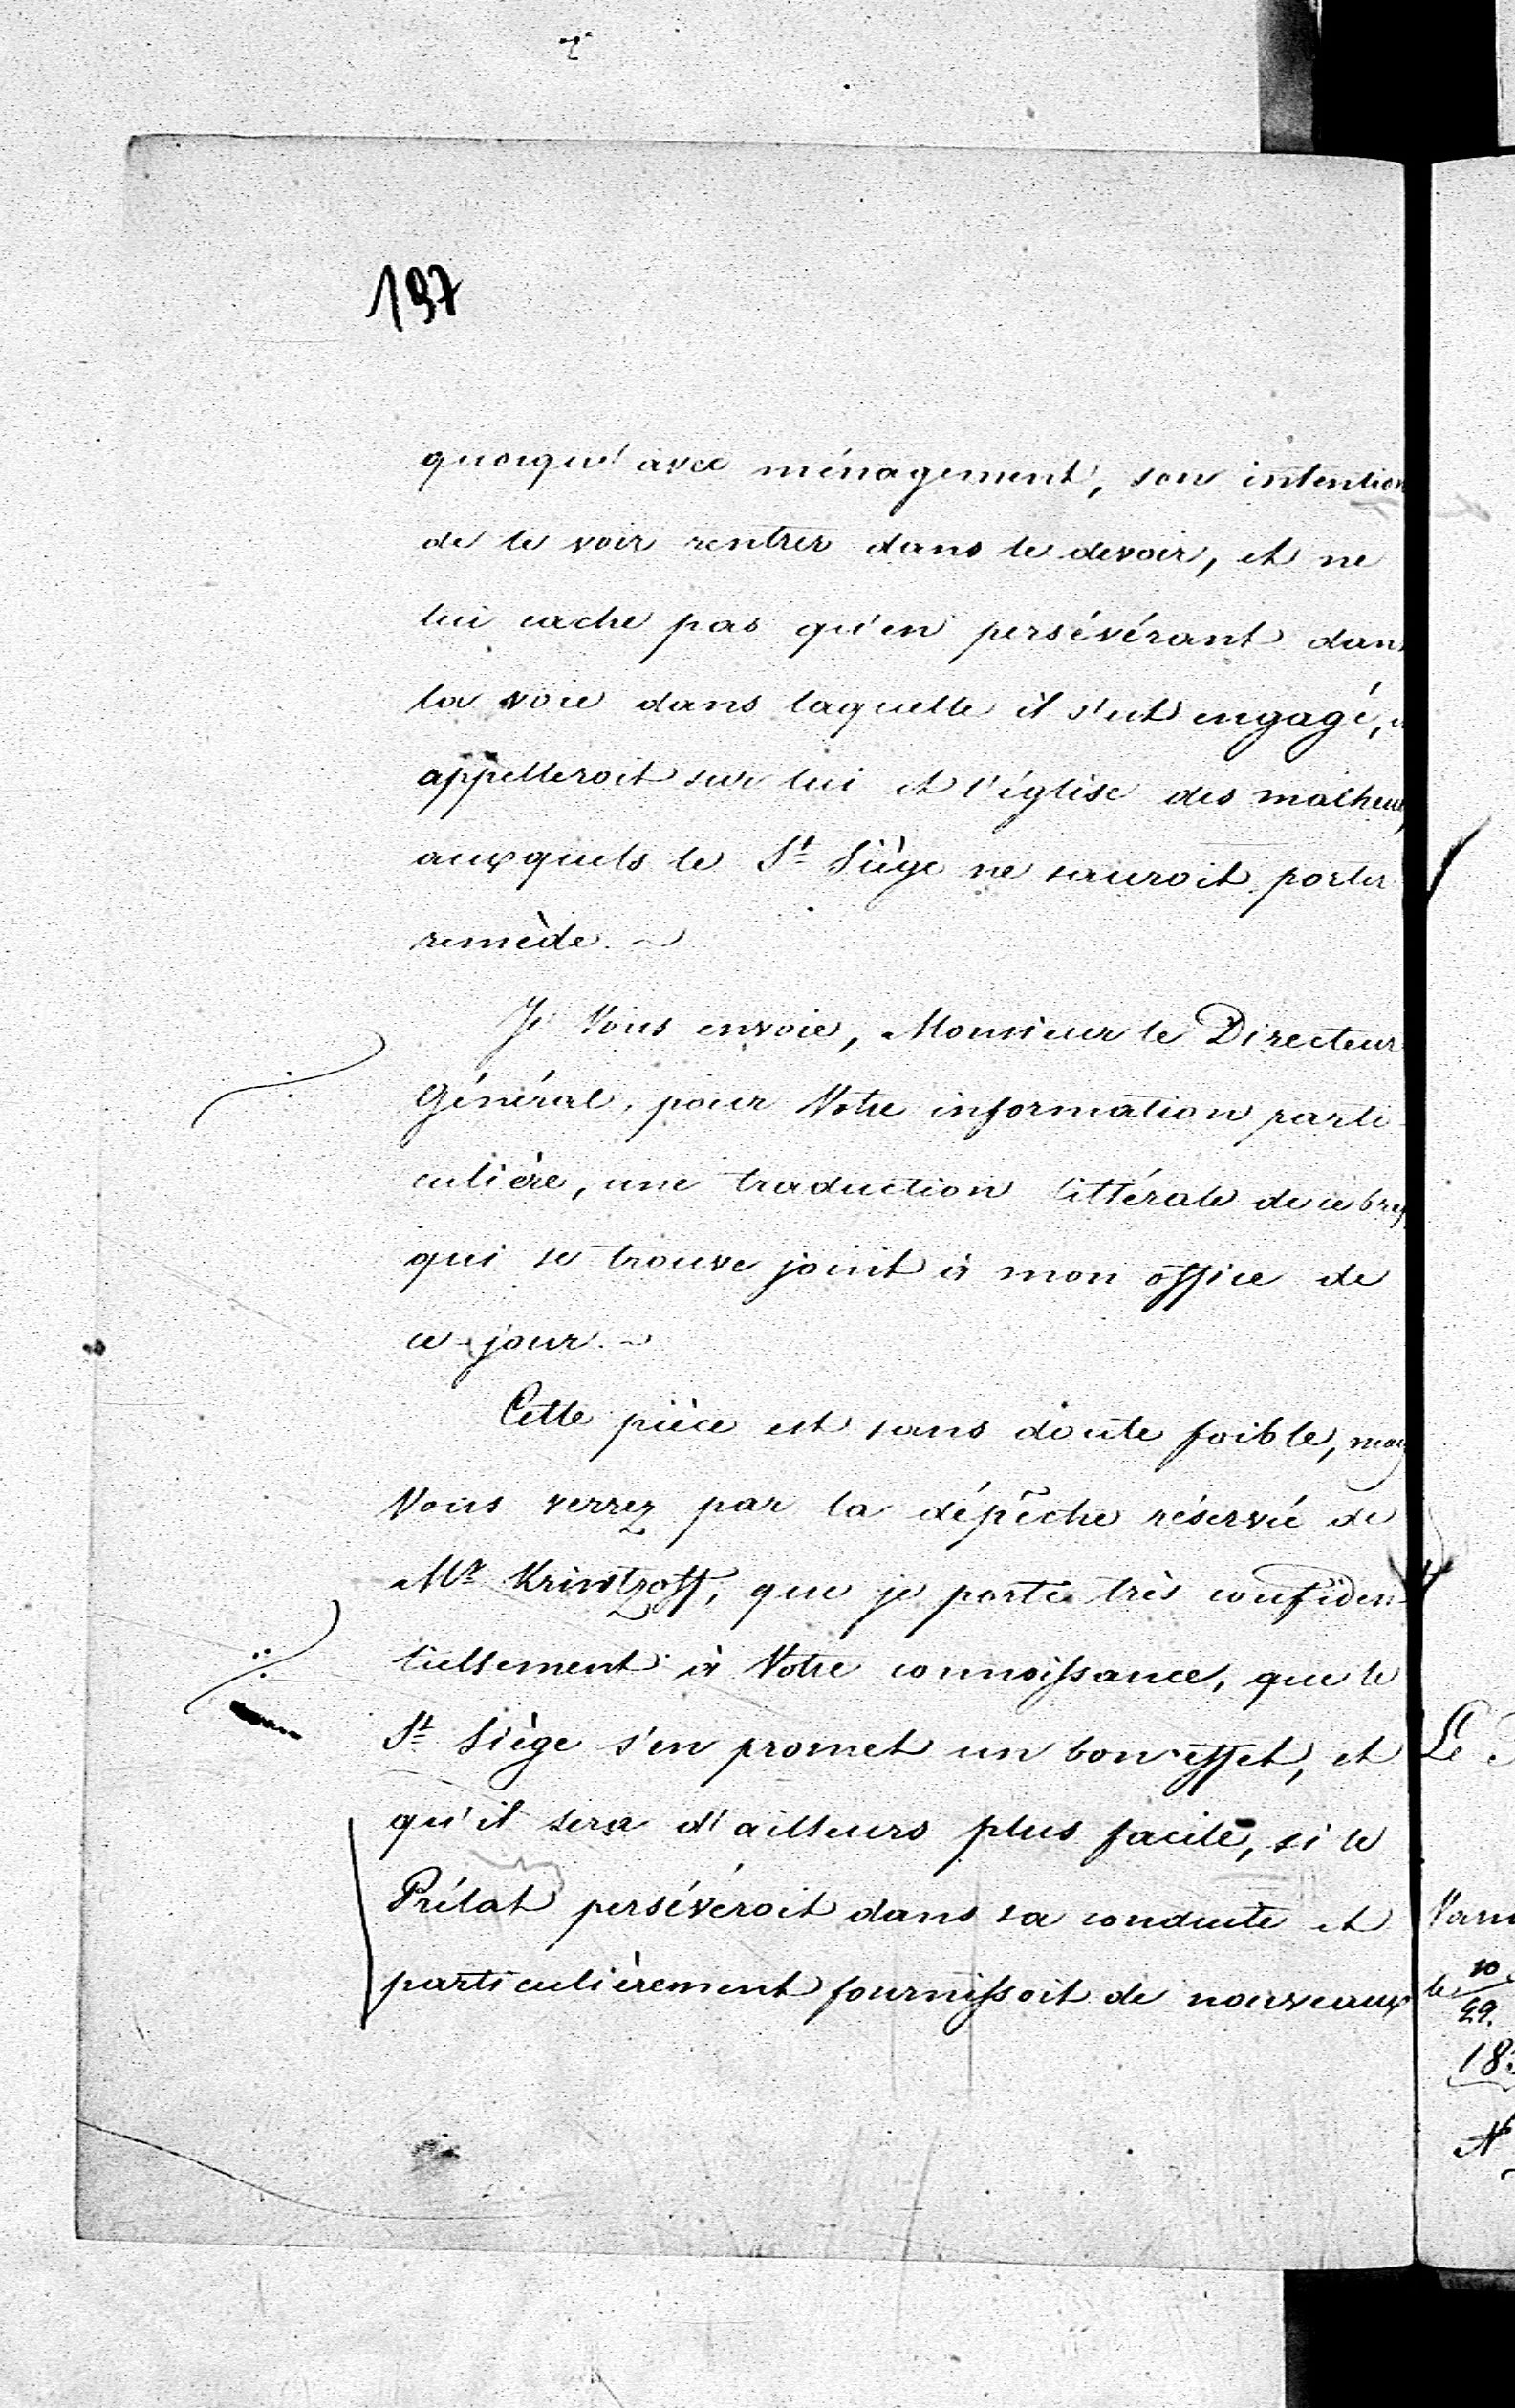 197
quoiqu'avec ménagement, son intention
de le voir rentrer dans le devoir, et ne
lui cache pas qu'en persévérant dans
la voie dans laquelle il s'est engagé,
appelleroit sur lui et l'église des malheurs
auxquels le St Siège ne sauroit porter
remède. ~
Je Vous envoie, Monsieur le Directeur
Général, pour Votre information parti-
culière, une traduction littérale de ce bref
qui se trouve joint à mon office de
ce jour. ~
Cette pièce est sans doute foible, mais
Vous verrez par la dépêche réservée de
Mr Krivtzoff, que je porte très confiden-
tiellement à Votre connoissance, que le
St Siège s'en promet un bon effet, et
qu'il sera d'ailleurs plus facile, si le
Prélat persévéroit dans sa conduite et
particulièrement fournissoit de nouveaux
Le
Vars
le 10/29.
18
N